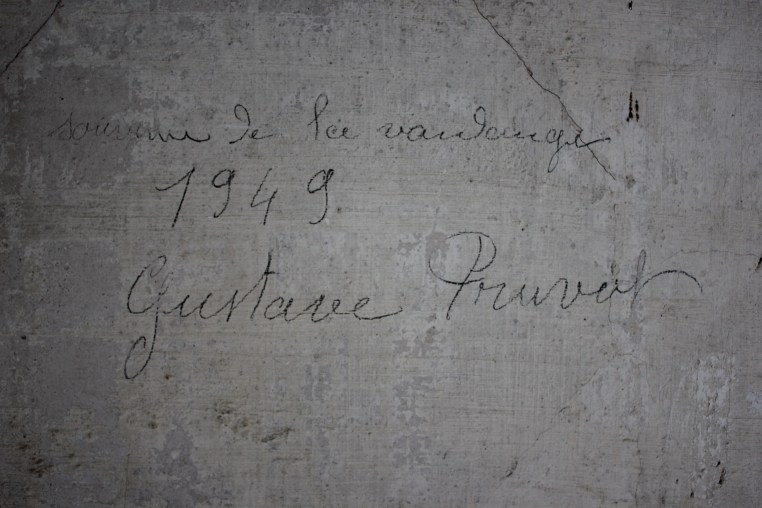 souvenir de la vandange
1949
Gustave Pruvot